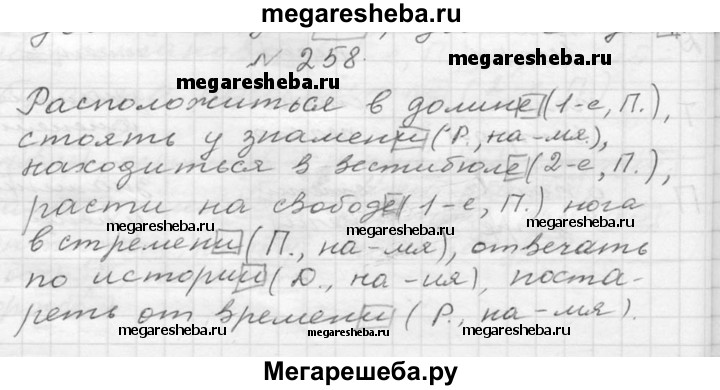 megaresheba.ru
№ 258.
megaresheba.ru megaresheba.ru
Расположиться в долине (1-е, П.),
стоять у знамени (Р., на -мя),
находиться в вестибюле (2-е, П.),
расти на свободе (1-е, П.) нога
megaresheba.ru megaresheba.ru
в стремени (П., на -мя), отвечать
по истории (Д., на -ия), поста-
реть от времени (Р., на -мя).
megaresheba.ru megaresheba.ru
Мегарешеба.ру